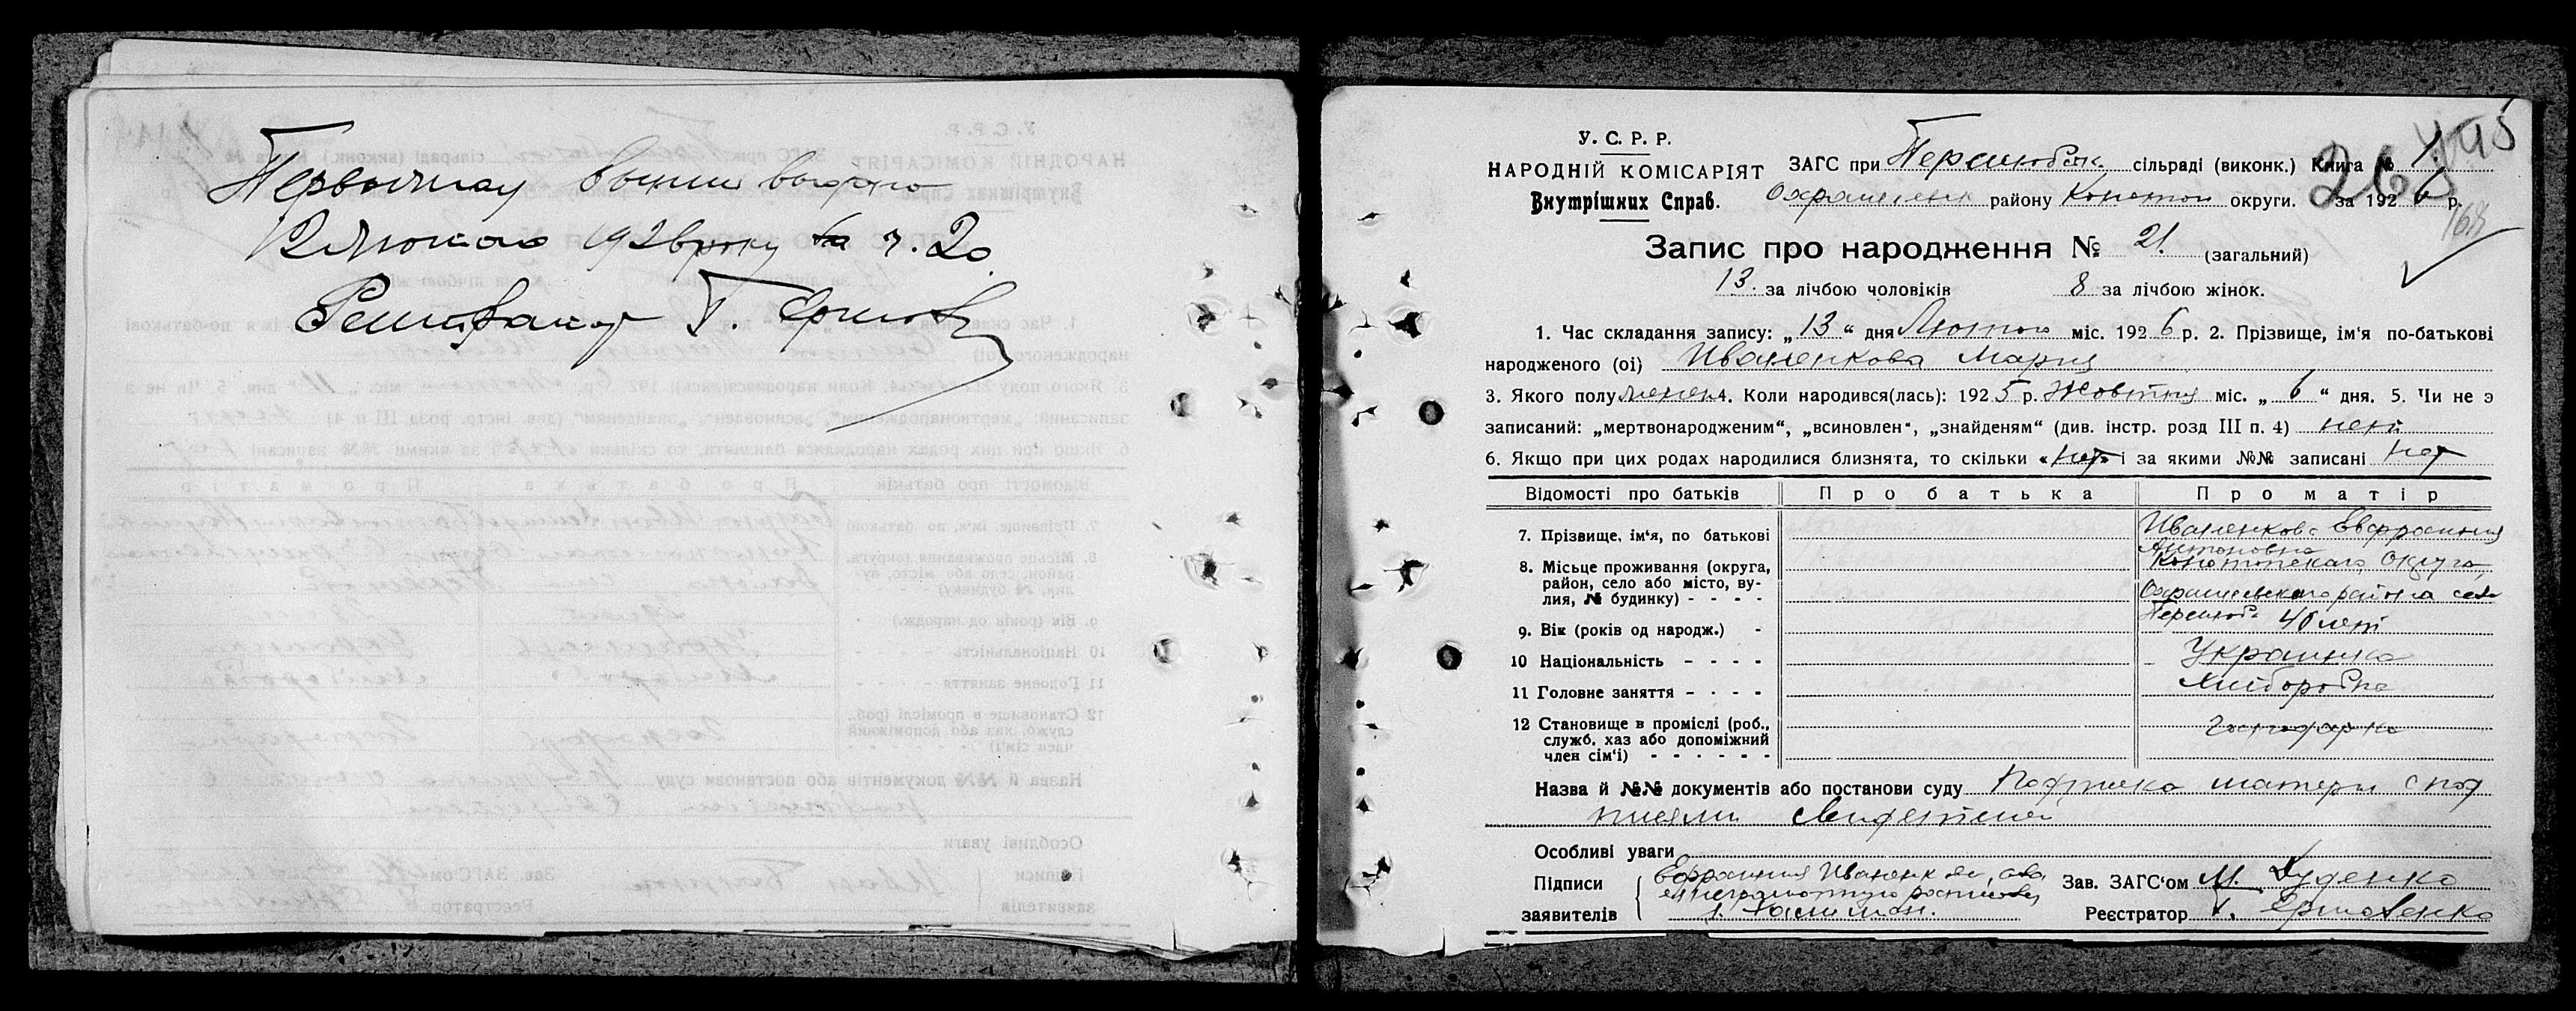 Первичную выпис выдано
12 Лютого 1926 року за ч. 20
Регистратор Г.
У. С. Р. Р.
НАРОДНІЙ КОМІСАРІЯТ
Внутрішних Справ.
ЗАГС при Перелюбск. сільраді (виконк.) Книга № 1
районy Конотоп округи. за 1926 р.
265
445
168
Запис про народження № 21. (загальний)
13. за лічбою чоловіків 8 за лічбою жінок.
1. Час складання запису: „13“ дня Лютого міс. 1926 р. 2. Прізвище, ім‘я по-батькові
народженого (ої) Иваненкова Мария
3. Якого полу женск 4. Коли народився(лась): 1925 р. Жовтня міс. „6“ дня. 5. Чи не э
записаний: „мертвонародженим“, „всиновлен“, „знайденям“ (див. інстр. розд III п. 4) нет
6. Якщо при цих родах народилися близнята, то скільки «нет» і за якими №№ записані нет
Відомості про батьків
Про батька
Про матір
7. Прізвище, ім‘я, по батькові
Иваненкова Евфросиния
Антоновна
8. Місьце проживання (округа,
район, село або місто, ву-
лия, № будинку) - - - -
Конотопскаго Округа,
района село
Перелюб
9. Вік (років од народж.) -
40 лет
10 Національність - - - -
Украинка
11 Головне заняття - - - -
Хлиборобка
12 Становище в промислі (роб.,
служб. хаз або допоміжний
член сім‘ї) - - - - - -
Господарка
Назва й №№ документів або постанови суду Подписка матери с под
писями свидетелей
Особливі уваги
Підписи
заявителів
Евфросиния Иваненкова, а за
ея неграмотную росписался
Зав. ЗАГС‘ом М. Руденко
Реєстратор Г. Ермоленко